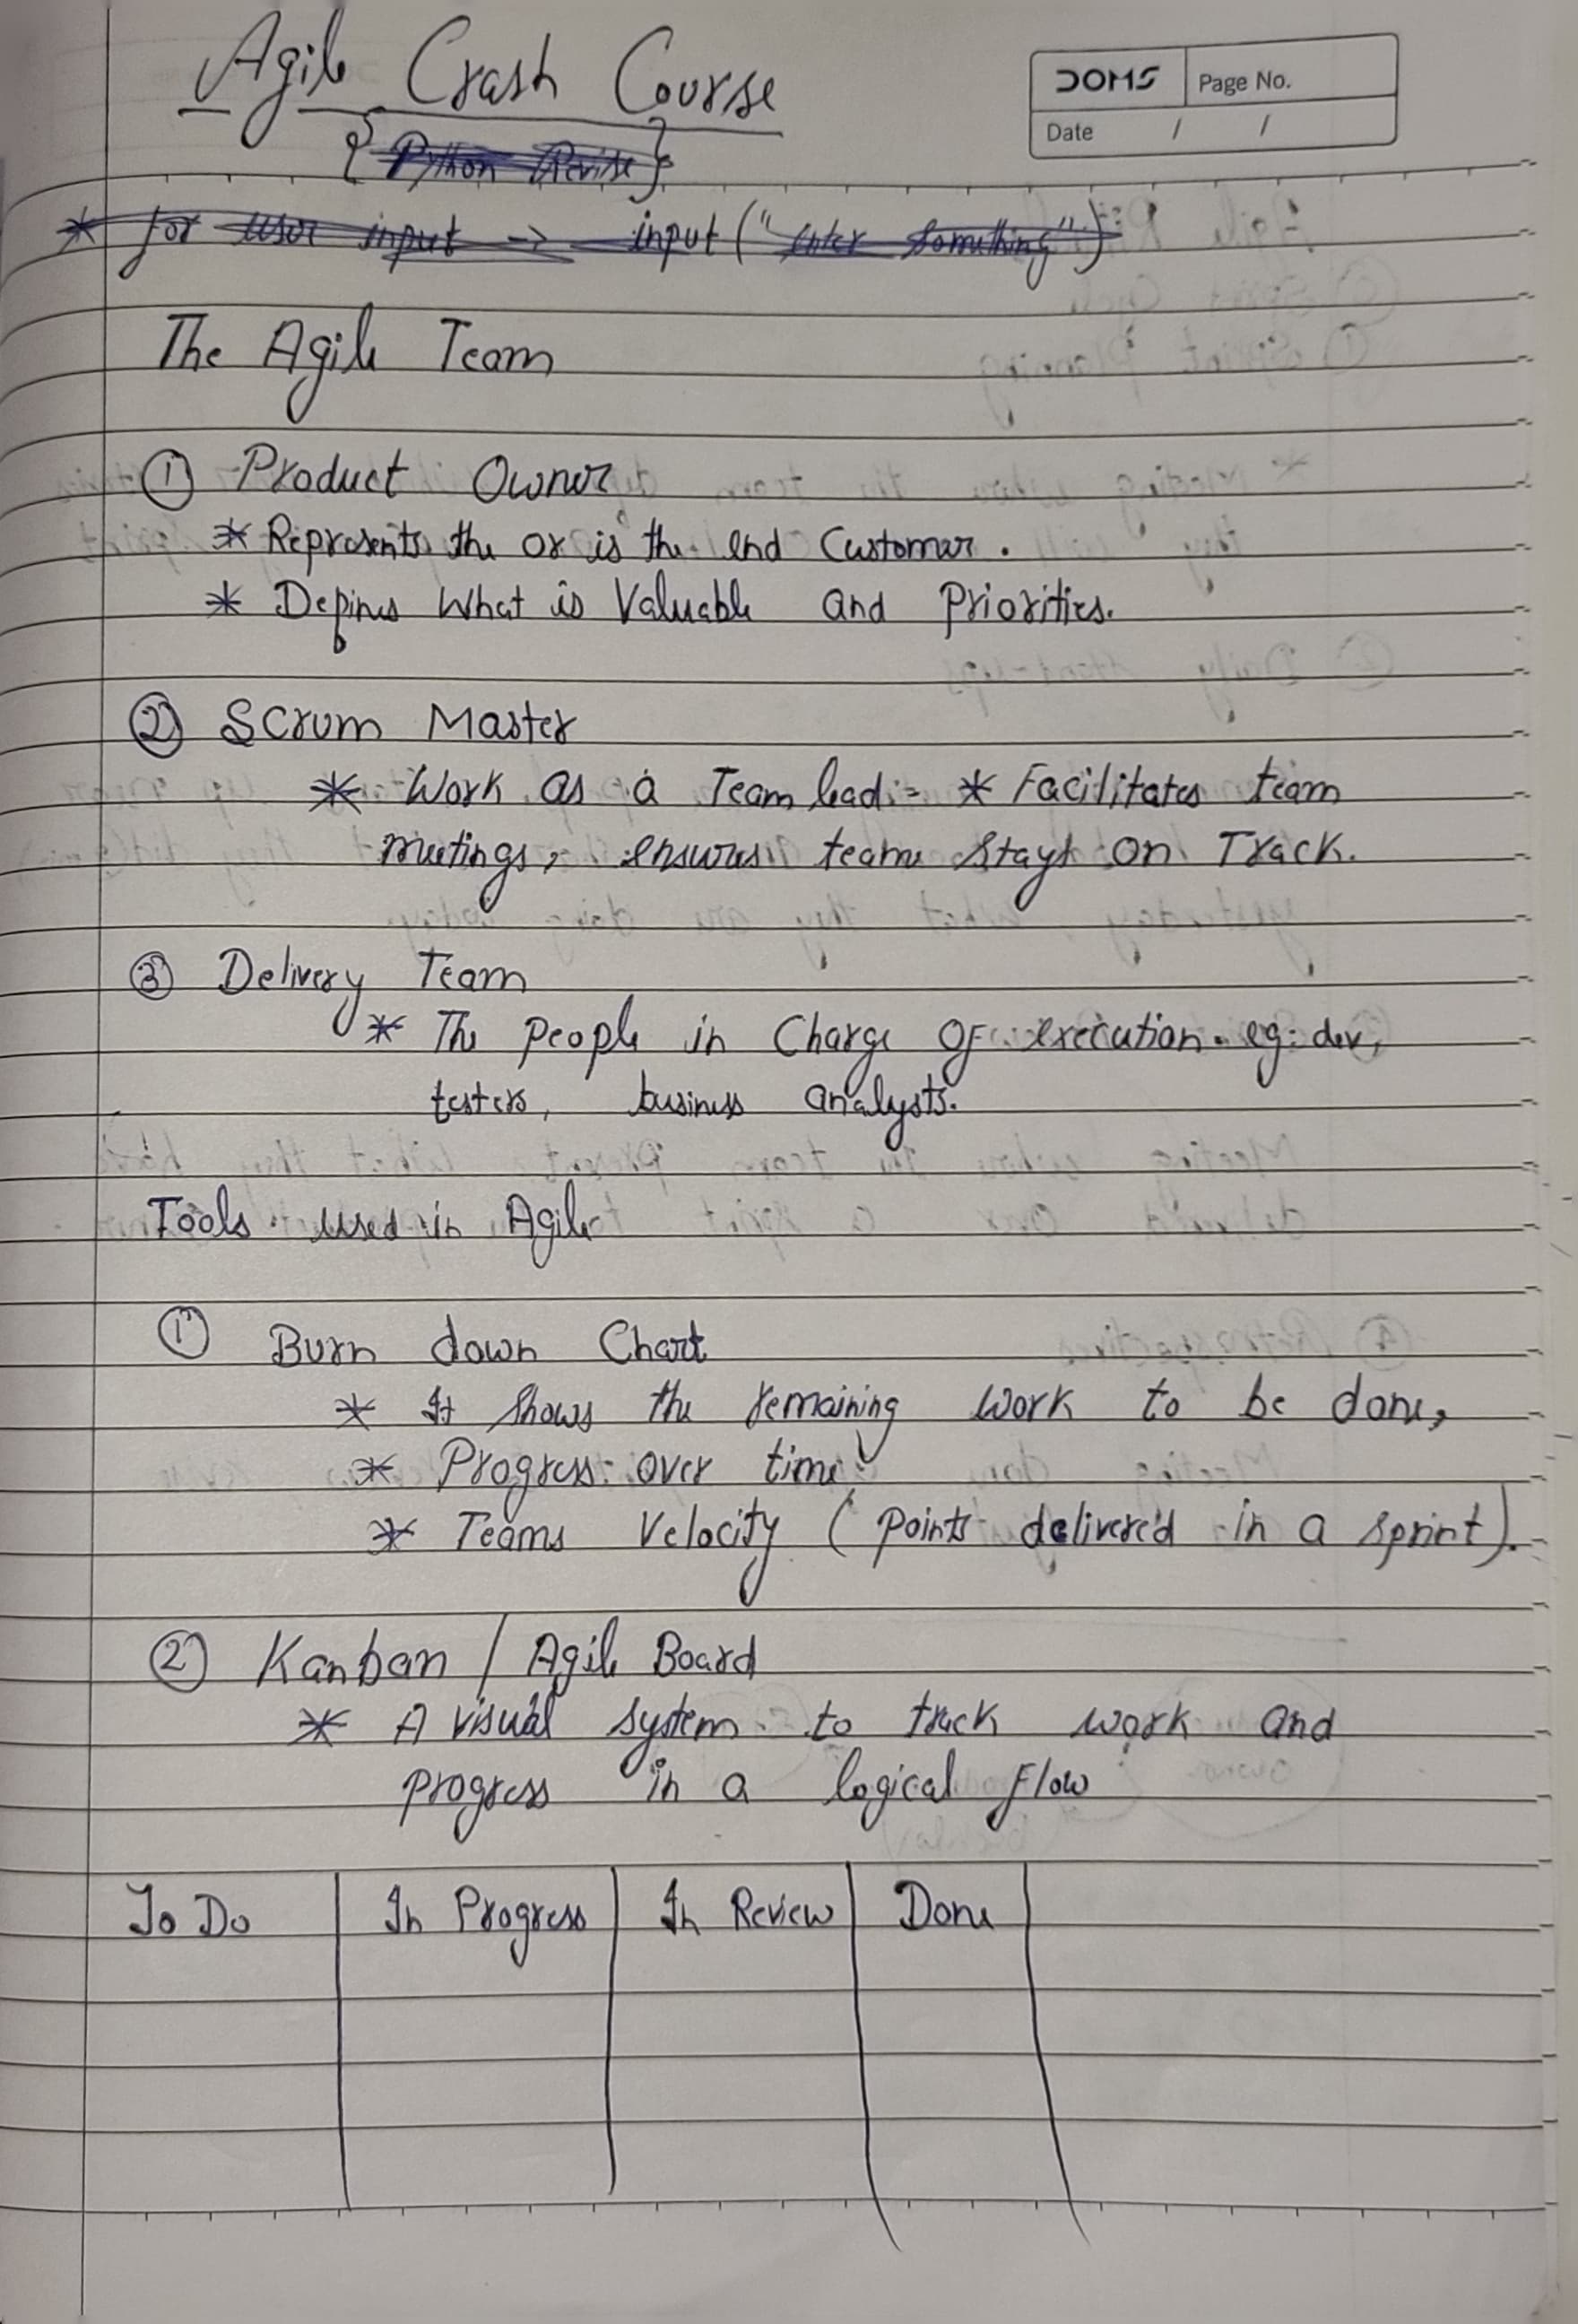 Agile Crash Course
DOMS Page No.
Date / /
{Python Revise}
* for user input -> input ("enter Something")
The Agile Team
① Product Owner
* Represents the or is the end Customer.
* Defines What is Valuable and Priorities.
② Scrum Master
* Work as a Team lead:- * Facilitates team
meetings, ensures team stays on Track.
③ Delivery Team
* The people in Charge OF execution. eg: dev,
testers, business analysts.
Tools used in Agile
① Burn down Chart
* It shows the remaining work to be done,
* Progress over time
* Teams Velocity (points delivered in a sprint).
② Kanban / Agile Board
* A visual system to track work and
progress in a logical Flow
To Do | In Progress | In Review | Done |